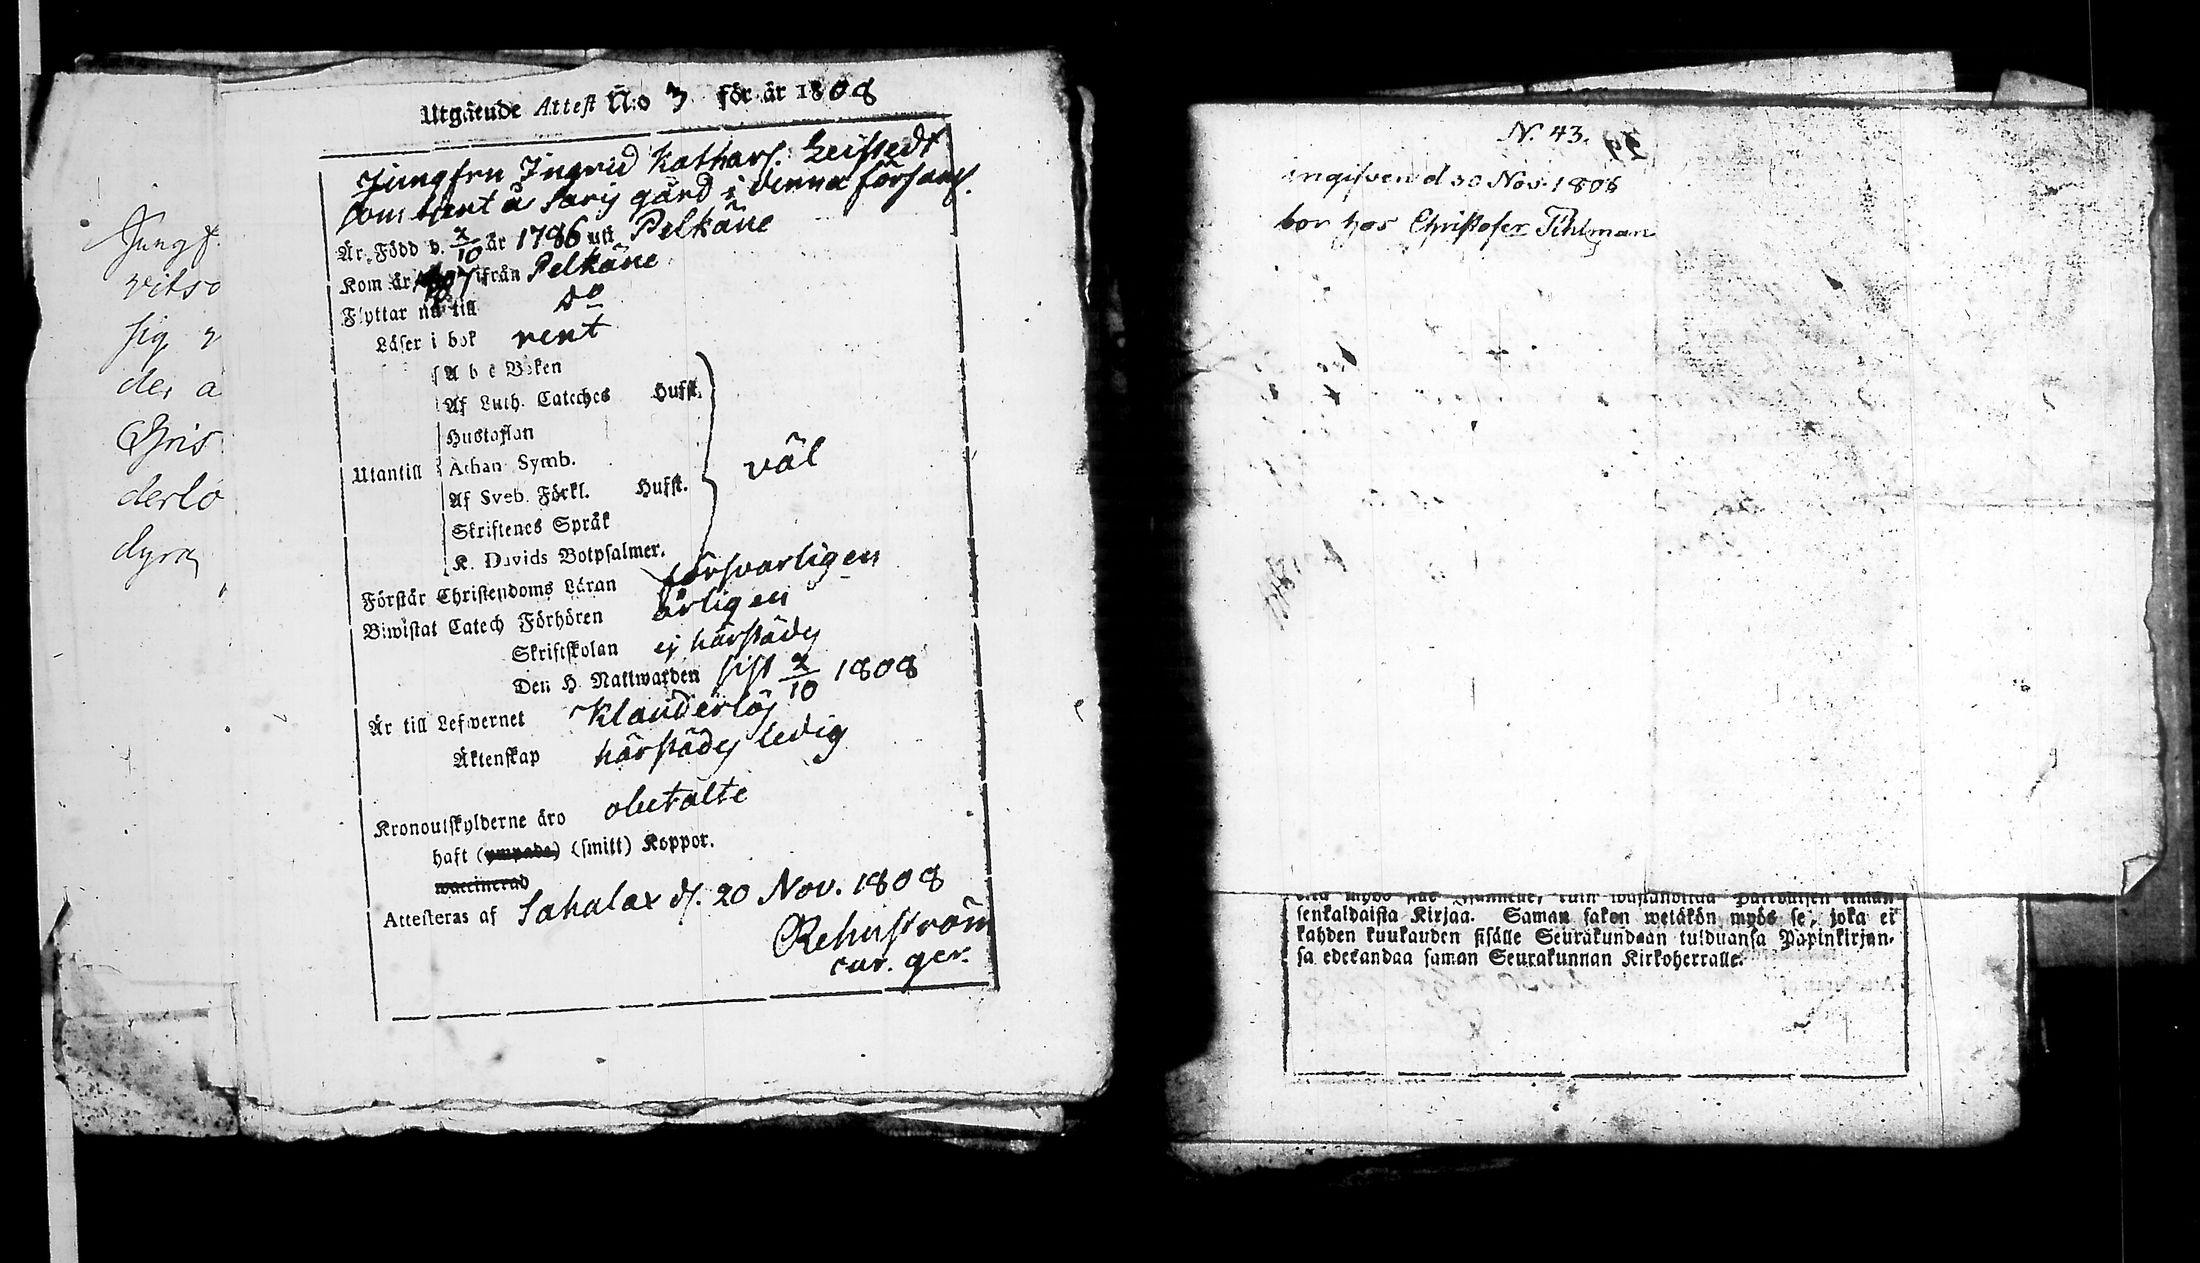 Utgående Attest N:o 3 för år 1808
Jungfru Ingrid Kathar. Leistedt
som tjent å Saris gård i denna församl.
Är Född d. 2/10 år 1786 uti Pelkäne
Kom år 1807 ifrån Pelkäne
Flyttar nu till Do
Läser i bok rent
Utantill
A b c Boken
Af Luth. Cateches Hufst.
Hustaflan
Athan Symb.
Af Sveb. Förkl. Hufst.
Skriftenes Språk
K. Davids Botpsalmer.
väl
Förstår Christendoms Läran försvarligen
Biwistat Catech Förhören årligen
Skriftskolan ej härstädes
Den H. Nattwarden sist 2/10 1808
Är till Lefwernet Klanderlös
Äktenskap härstädes ledig
Kronoutskylderne äro obetalte
haft (ympade) (smitt) Koppor.
waccinerad
Attesteras af Sahalax d. 20 Nov. 1808
Rehnström
cur. ger.
Jungf.
vitso
sig
der a
Chris
derlö
dyra
N. 43.
ingifven d 30 Nov. 1808
bor hos Christofer Tihlman
senkaldaista Kirjaa. Saman sakon wetäkön myös se, joka ei
kahden kuukauden sisälle Seurakundaan tulduansa Papinkirjan-
sa edeskandaa saman Seurakunnan Kirkoherralle.